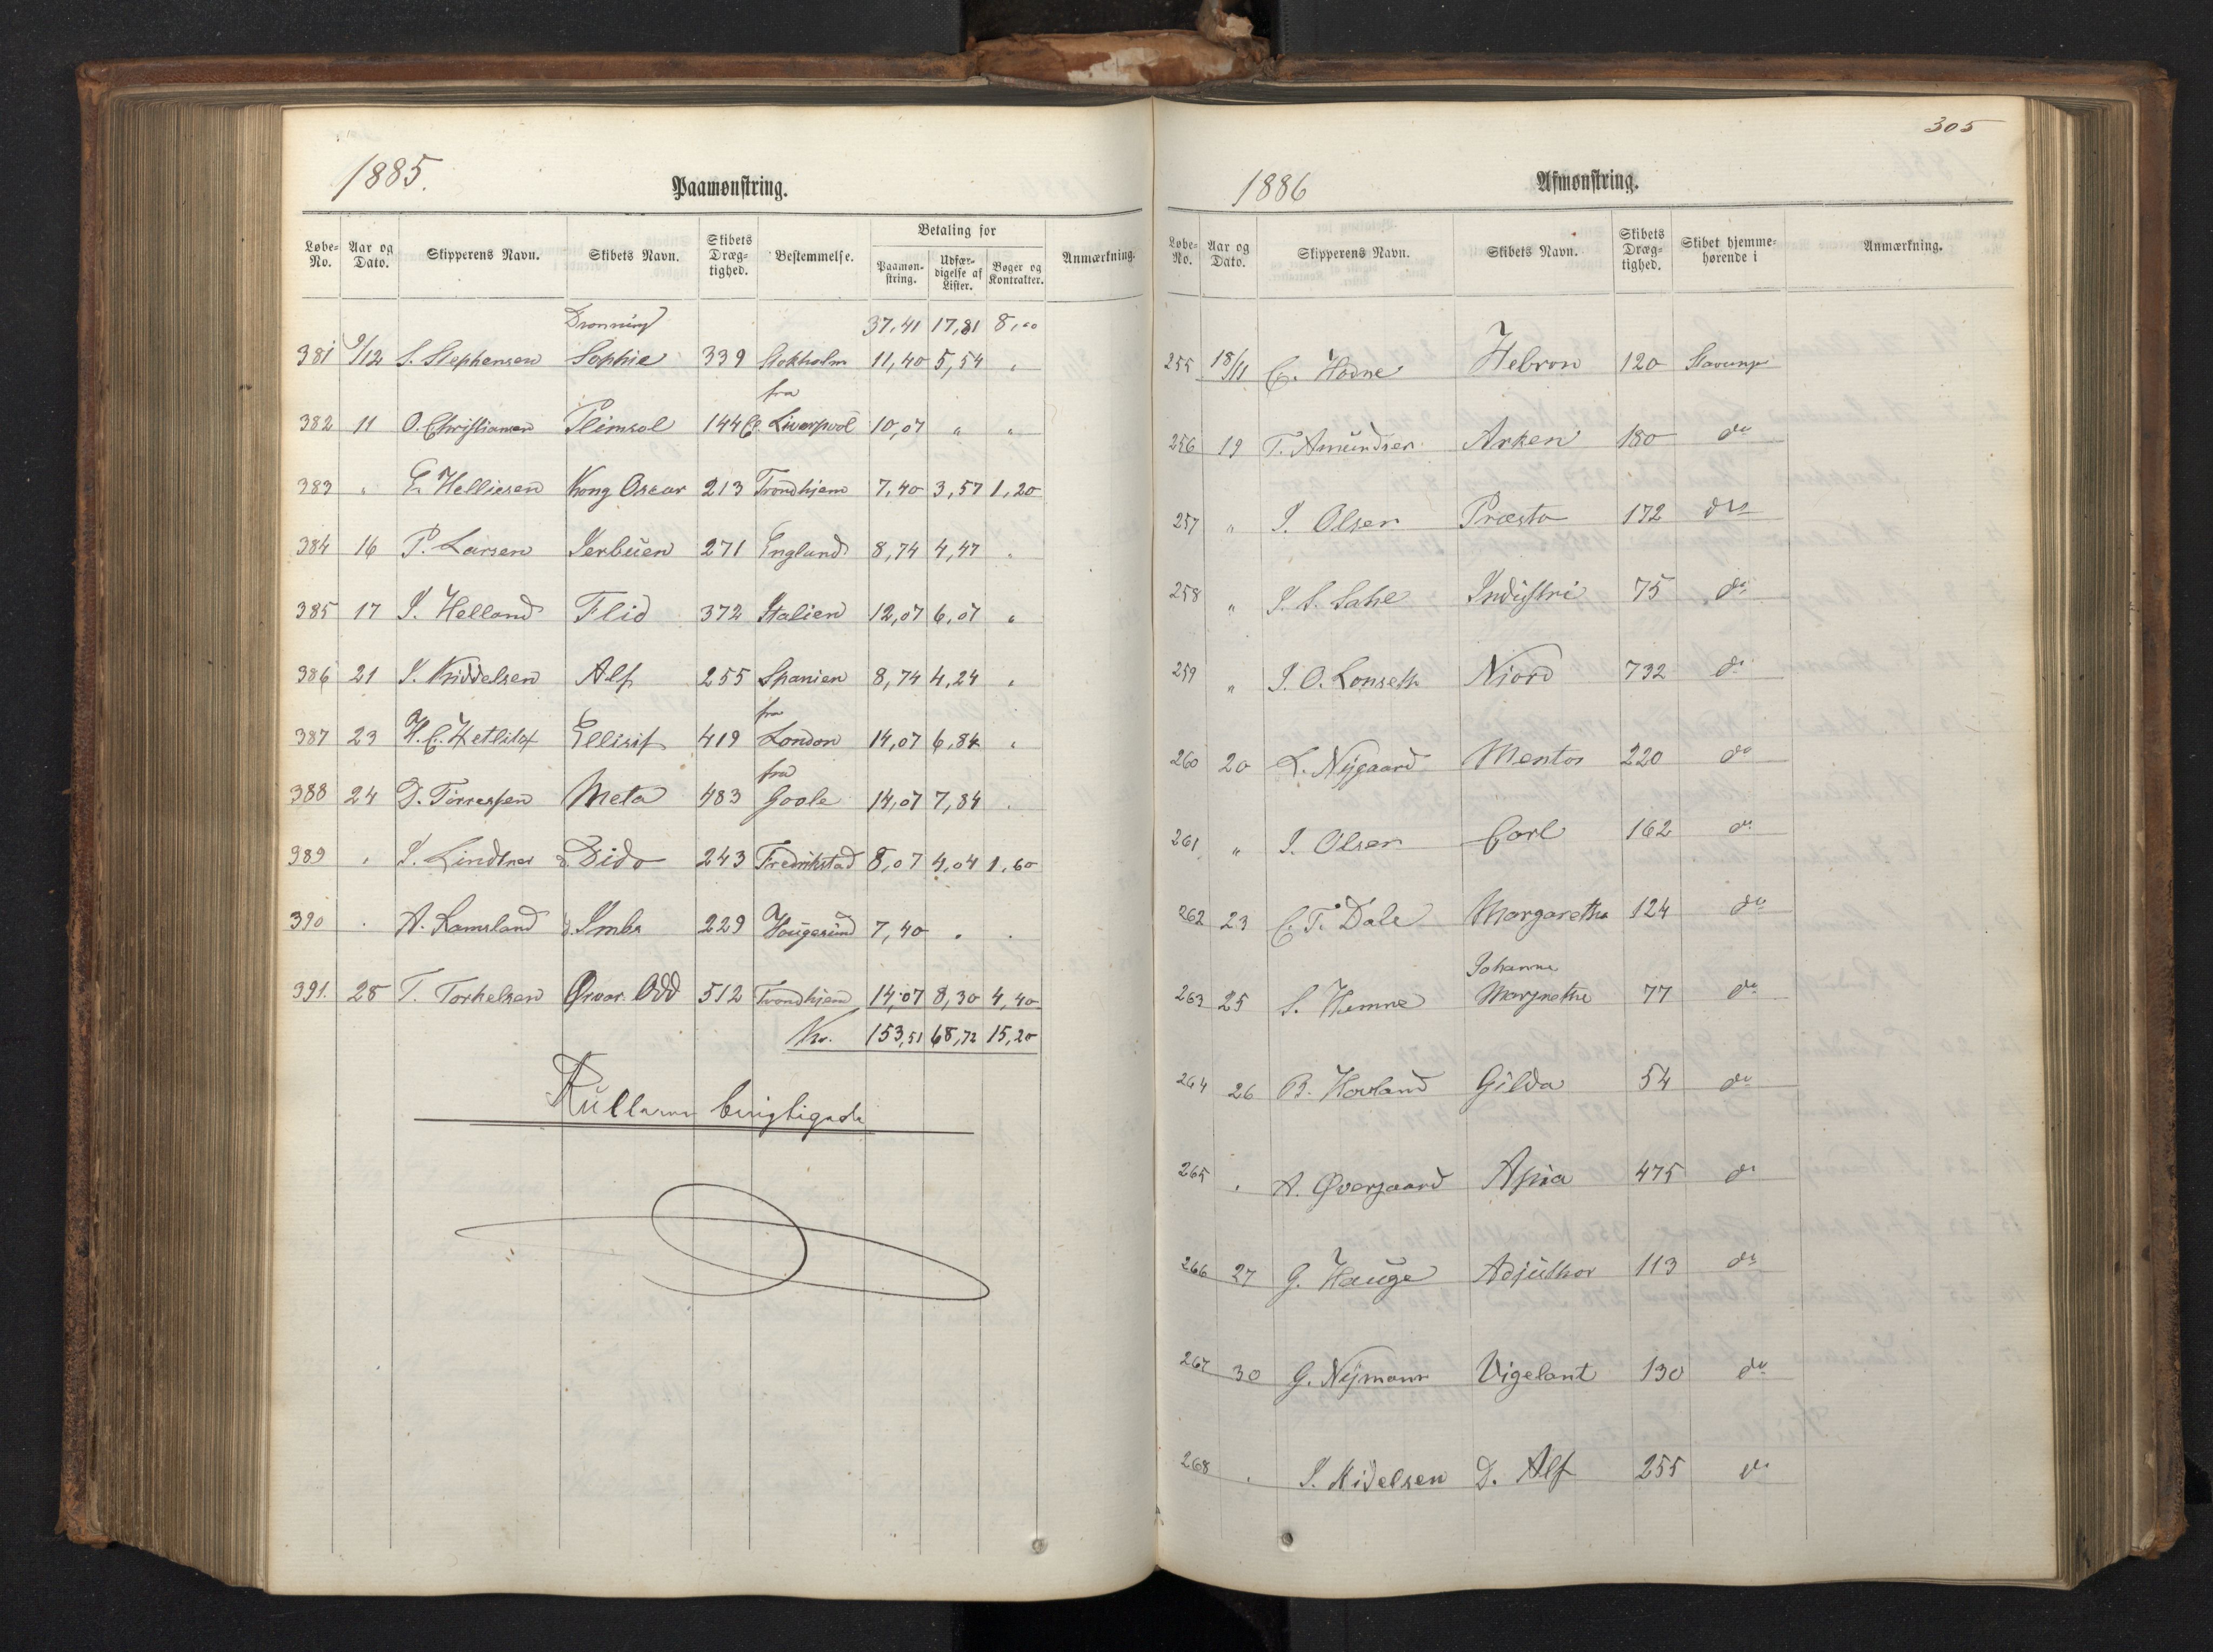 1885.
Paamønstring.
Løbe-No. Aar og Dato. Skipperens Navn. Skibets Navn. Skibets Dræg-tighed. Bestemmelse. Betaling for Paamøn-string. Udfær-digelse af Lister. Bøger og Kontrakter. Anmærkning.
Dronning 37,41 17,81 8,00
381 9/12 S. Stephensen Sophie 339 Stokholm 11,40 5,54 "
fra
382 11 O. Christiansen Plimsol 144 C. Liverpool 10,07 " "
383 " E. Helliesen Kong Oscar 213 Trondhjem 7,40 3,57 1,20
384 16 P. Larsen Serbuen 271 England 8,74 4,47 "
385 17 S. Helland Flid 372 Italien 12,07 6,07 "
386 21 S. Kiddelsen Alf 255 Spanien 8,74 4,24 "
fra
387 23 H. C. Ellisif 419 London 14,07 6,84 "
fra
388 24 D. Tørresen Meta 483 Goole 14,07 7,84 .
389 " I. Lindtner D. Dido 243 Fredrikstad 8,07 4,04 1,60
390 . A. Ramsland D. Imbs 229 Haugesund 7,40 . .
391. 28 T. Torkelsen Ørvar Odd 512 Trondhjem 14,07 8,30 4,40
Kr. 153,51 68,72 15,20
Rullerne berigtigede
305
1886
Afmønstring.
Løbe-No. Aar og Dato. Skipperens Navn. Skibets Navn. Skibets Dræg-tighed. Skibet hjemme-hørende i Anmærkning.
255 18/11 C. Hodne Hebron 120 Stavanger
256 19 T. Amundsen Arken 180 do
257 " I. Olsen Præsto 172 do
258 " I. S. Sahl Industri 75 do
259 " I. O. Lonseth Niord 732 do
260 20 L. Nygaard Mentor 220 do
261 " I. Olsen Carl 162 do
262 23 C. T. Dale Margaretha 124 do
Johanne
263 25 S. Hemne Margrethe 77 do
264 26 B. Hovland Gilda 54 do
265 . A. Øvergaard Apia 475 do
266 27 G. Hauge Adjuthor 113 do
267 30 G. Nymann Vigelant 130 do
268 . S. Kidelsen D. Alf 255 do